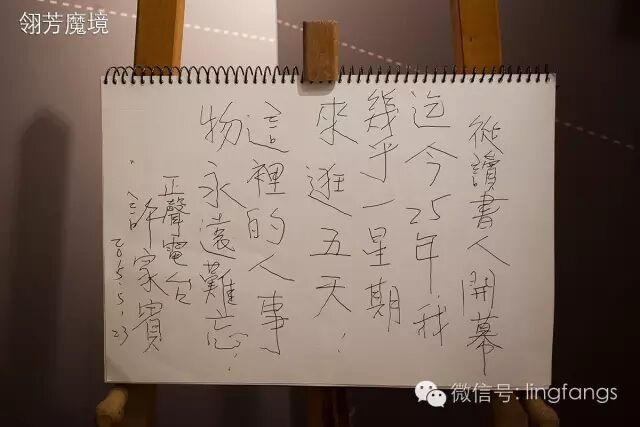 翎芳魔境
從讀書人開幕
迄今25年,我
幾乎一星期
來逛五天!
這裡的人事
物永遠難忘!
正聲電台
許家賓
2015.5.23
微信号: lingfangs